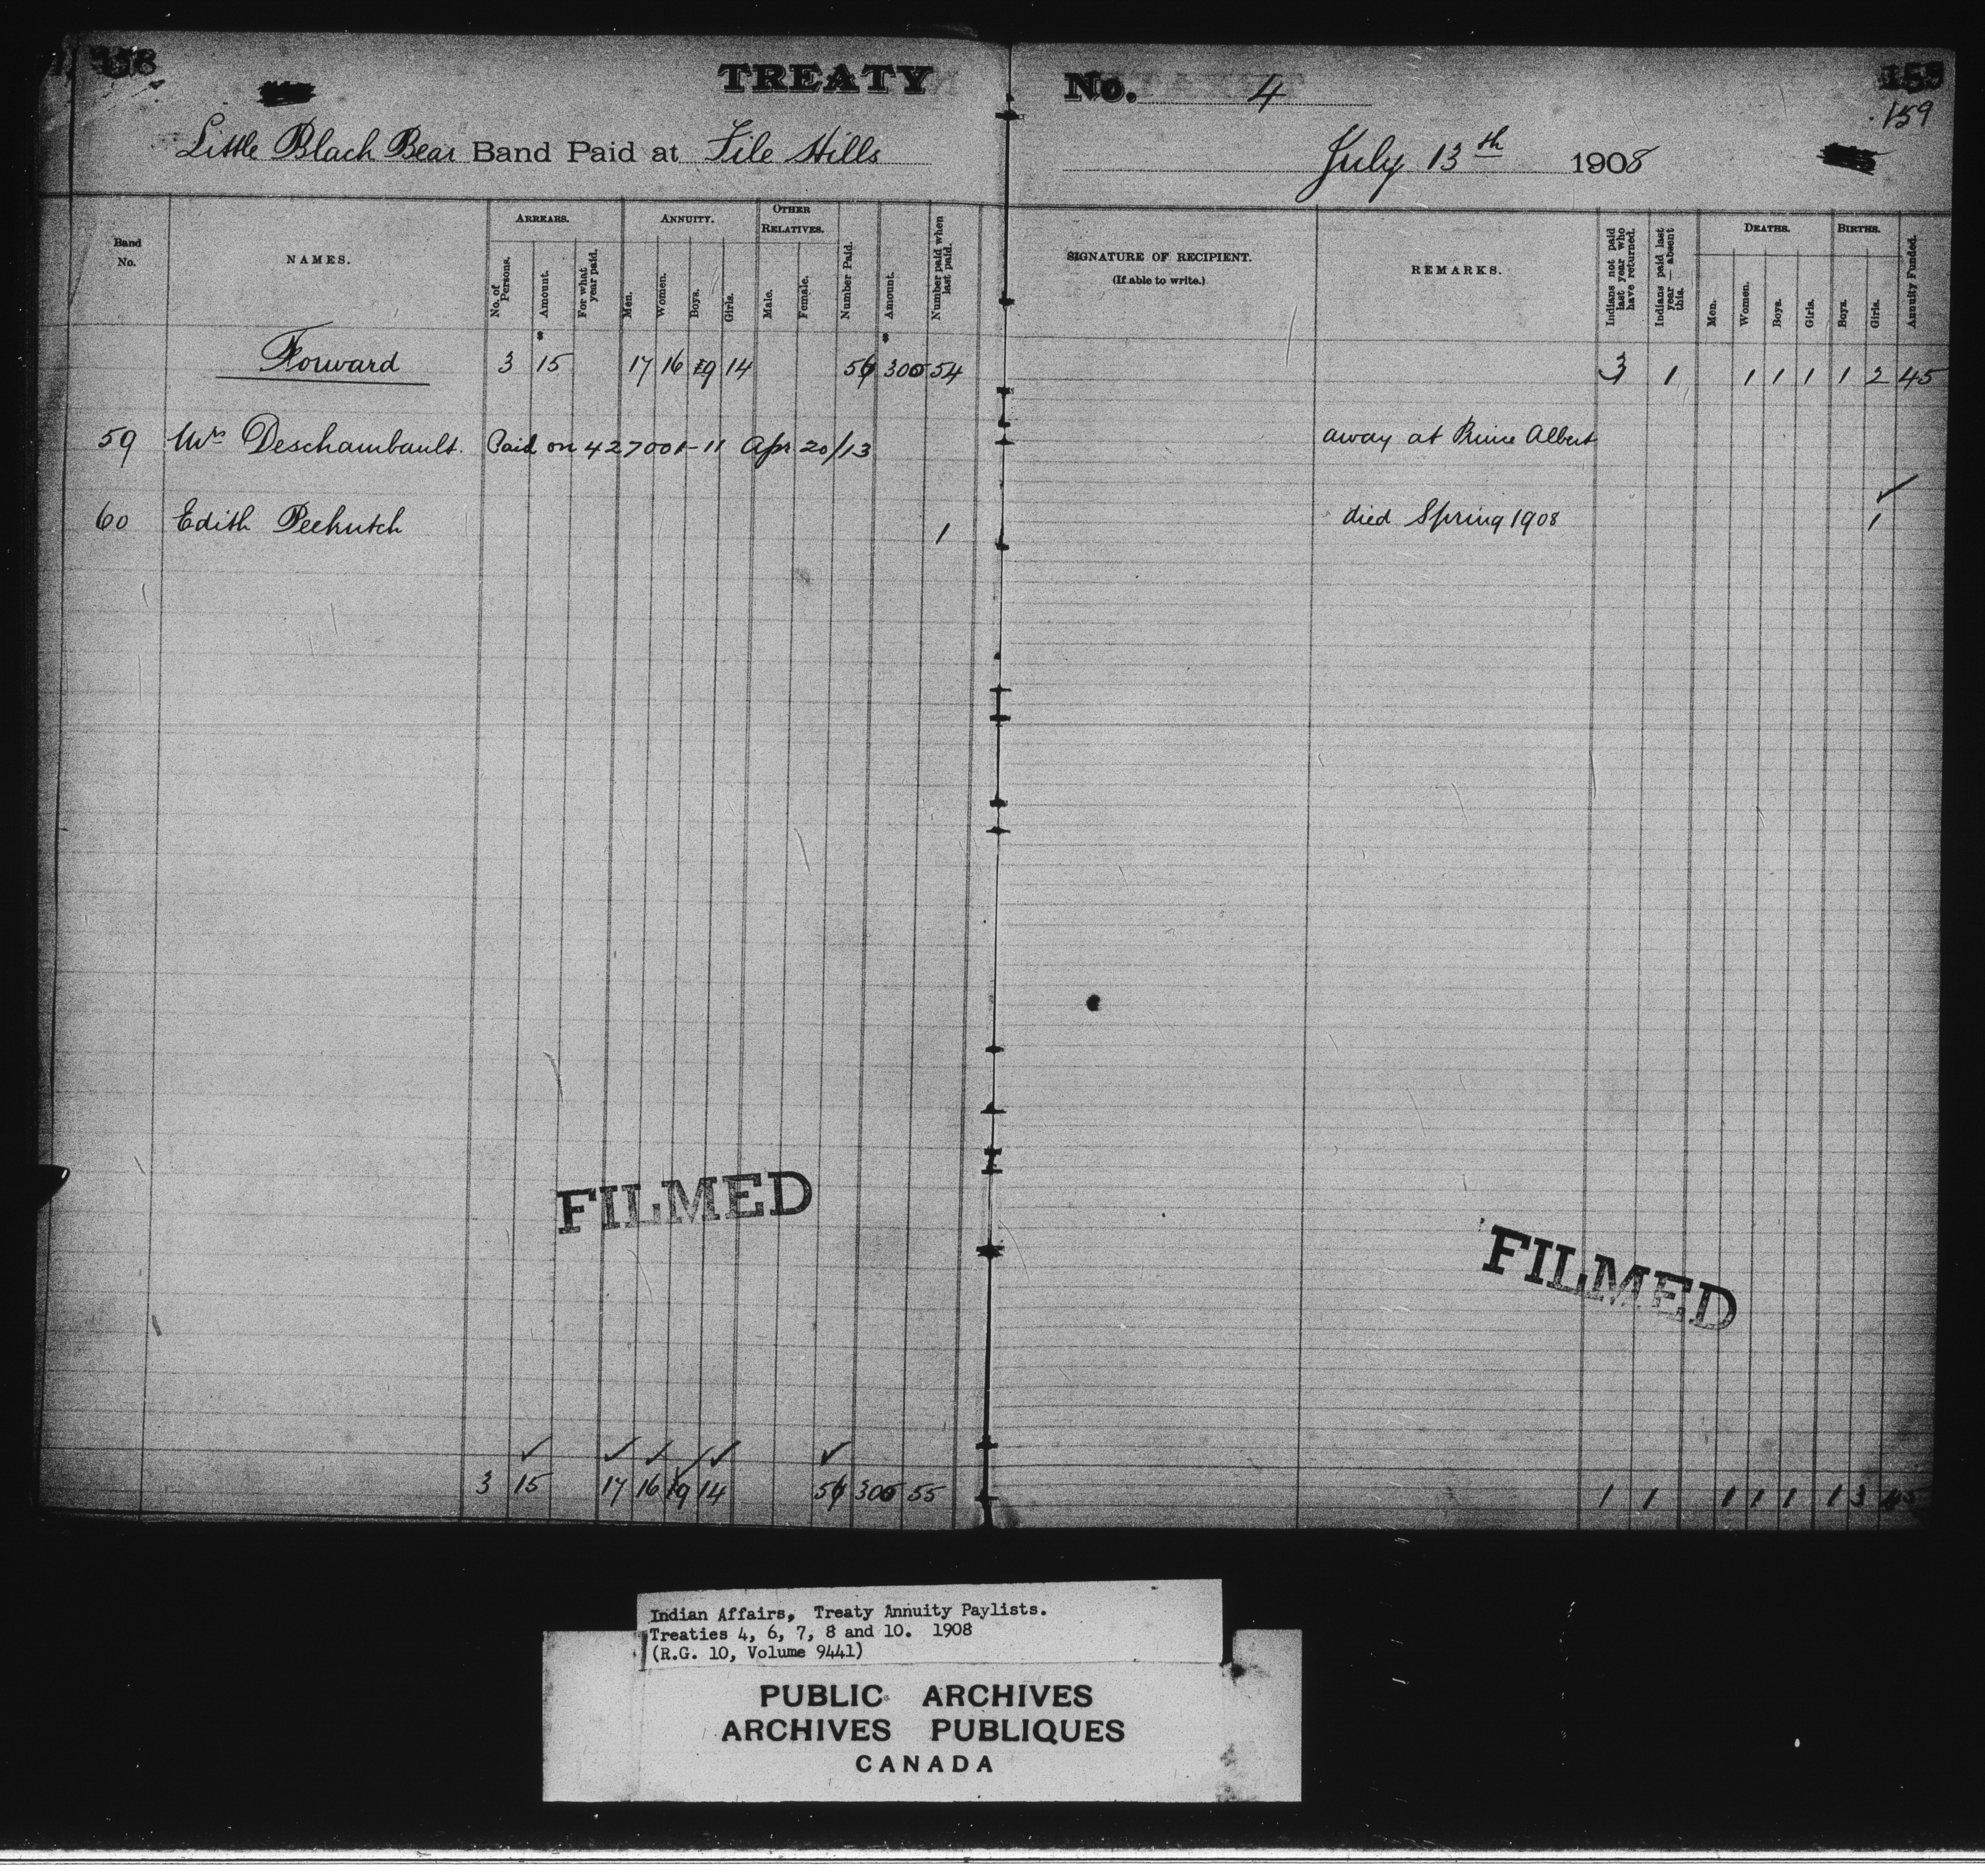 158
TREATY No. 4
159
159
Little Black Bear Band Paid at File Hills July 13th 1908
Band No.
NAMES.
ARREARS.
No. of Persons.
Amount.
For what year paid.
ANNUITY.
Men.
Women.
Boys.
Girls.
OTHER RELATIVES.
Male.
Female.
Number Paid.
Amount.
Number paid when last paid.
SIGNATURE OF RECIPIENT.
(If able to write.)
REMARKS.
Indians not paid last year who have returned.
Indians paid last year — absent this.
DEATHS.
Men.
Women.
Boys.
Girls.
BIRTHS.
Boys.
Girls.
Annuity Funded.
$ $
Forward 3 15 17 16 19 14 300 54 3 1 1 1 1 1 2 45
59 Mrs Deschambault. Paid on 427001-11 Apr 20/13 away at Prince Albert
60 Edith Peekutch 1 died Spring 1908 1
FILMED
FILMED
3 15 17 16 19 14 300 55 1 1 1 1 1 1 3 45
Indian Affairs, Treaty Annuity Paylists.
Treaties 4, 6, 7, 8 and 10. 1908
(R.G. 10, Volume 9441)
PUBLIC ARCHIVES
ARCHIVES PUBLIQUES
CANADA